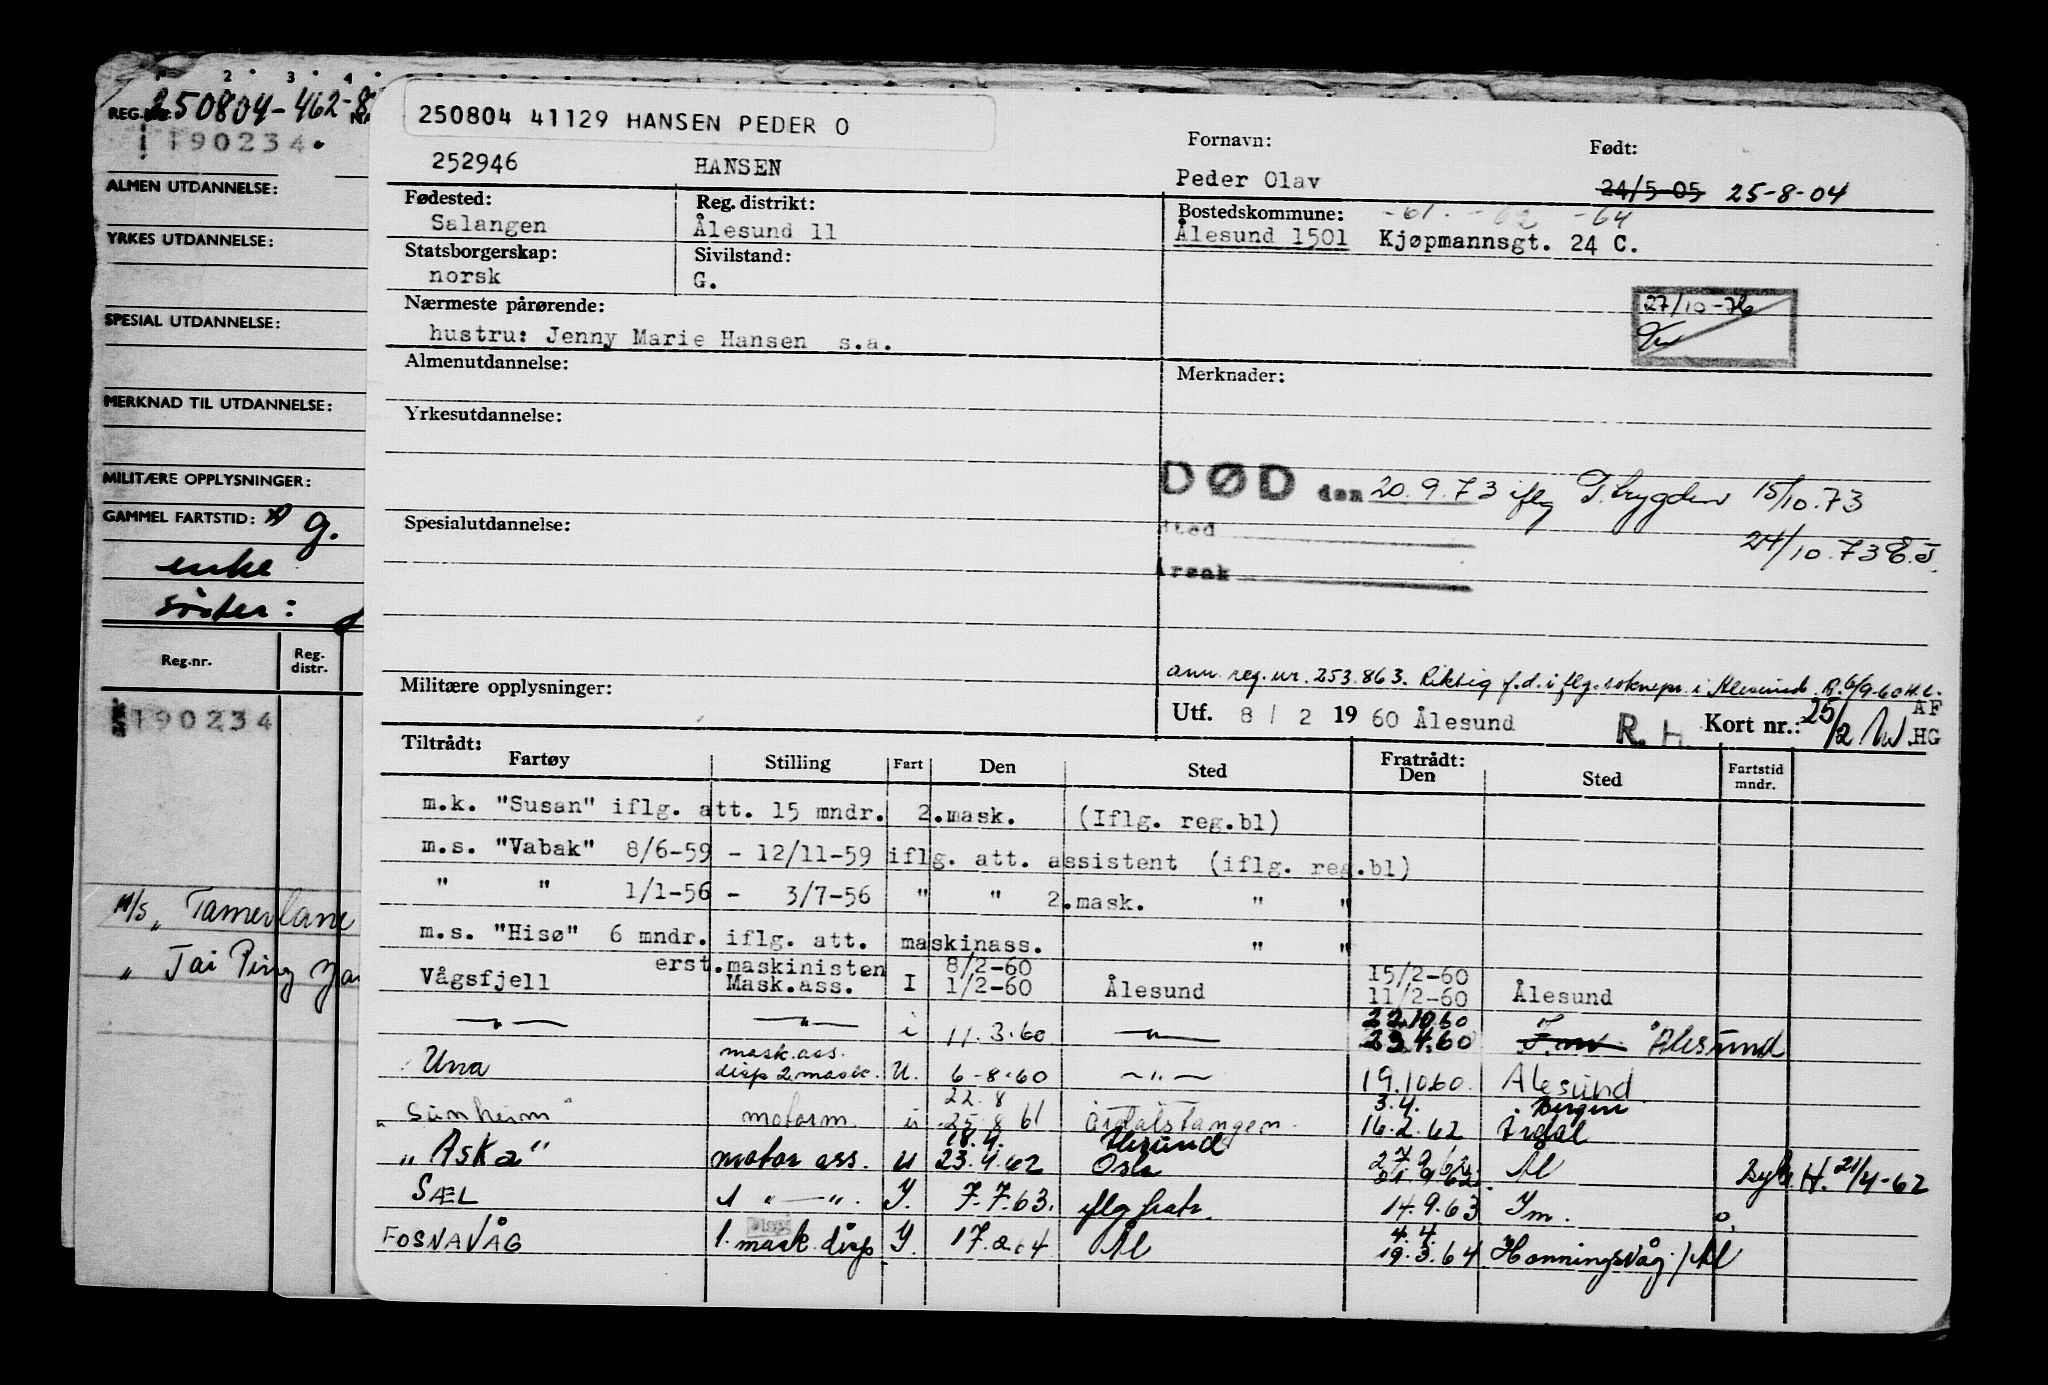 1 2 3 4
REG.NR. 250804-462-8
190234
ALMEN UTDANNELSE:
YRKES UTDANNELSE:
SPESIAL UTDANNELSE:
MERKNAD TIL UTDANNELSE:
MILITÆRE OPPLYSNINGER:
GAMMEL FARTSTID: g.
enke
søster:
Reg.nr. Reg. distr.
190234
M/S „ Tamerlane
„ Tai Ping
250804 41129 HANSEN PEDER O
252946 HANSEN
Fornavn: Født:
Peder Olav 24/5-05 25-8-04
Fødested: Reg. distrikt: Bostedskommune: -61. -62 -64
Salangen Ålesund 11 Ålesund 1501 Kjøpmannsgt. 24 C.
Statsborgerskap: Sivilstand:
norsk G.
Nærmeste pårørende: 27/10-76
hustru: Jenny Marie Hansen s.a.
Almenutdannelse: Merknader:
Yrkesutdannelse:
DØD den 20.9.73 iflg T.trygden 15/10.73
Spesialutdannelse: Sted 24/10.73 E.J.
Årsak
ann. reg.nr. 253.863. Riktig f.d. iflg. soknepr. i Ålesund. B. 6/9-60 H.L.
Militære opplysninger:
Utf. 8 / 2 19 60 Ålesund R.H. Kort nr.: 25/2 AF HG
Tiltrådt: Fratrådt:
Fartøy Stilling Fart Den Sted Den Sted Fartstid mndr.
m.k. "Susan" iflg. att. 15 mndr. 2.mask. (Iflg. reg.bl)
m.s. "Vabak" 8/6-59 - 12/11-59 iflg. att. assistent (iflg. reg.bl)
" " 1/1-56 - 3/7-56 " " 2.mask. " "
m.s. "Hisø" 6 mndr. iflg. att. maskinass. " "
erst.maskinisten 8/2-60 15/2-60
Vågsfjell Mask.ass. I 1/2-60 Ålesund 11/2-60 Ålesund
22.10.60
—"— —"— i 11.3.60 —"— 23.4.60 Ålesund
mask.ass.
Una disp 2 mask. U. 6-8-60 —"— 19.10.60. Ålesund
22.8 3.4. Bergen
„Sunheim" motorm. u 25.8 61 Årdalstangen. 16.2.62 Årdal
18.4. Ålesund 27.9.62
„Aska" motor ass. u 23.4.62 Oslo 9.62. Ål H. 21/4-62
SÆL 1 „—„. Y. 7.7.63. iflg fratr. 14.9.63 Im. o.
Disp 4.4.
FOSNAVÅG 1. mask. disp Y. 17.2.64 Ål 19.3.64 Honningsvåg/Ål